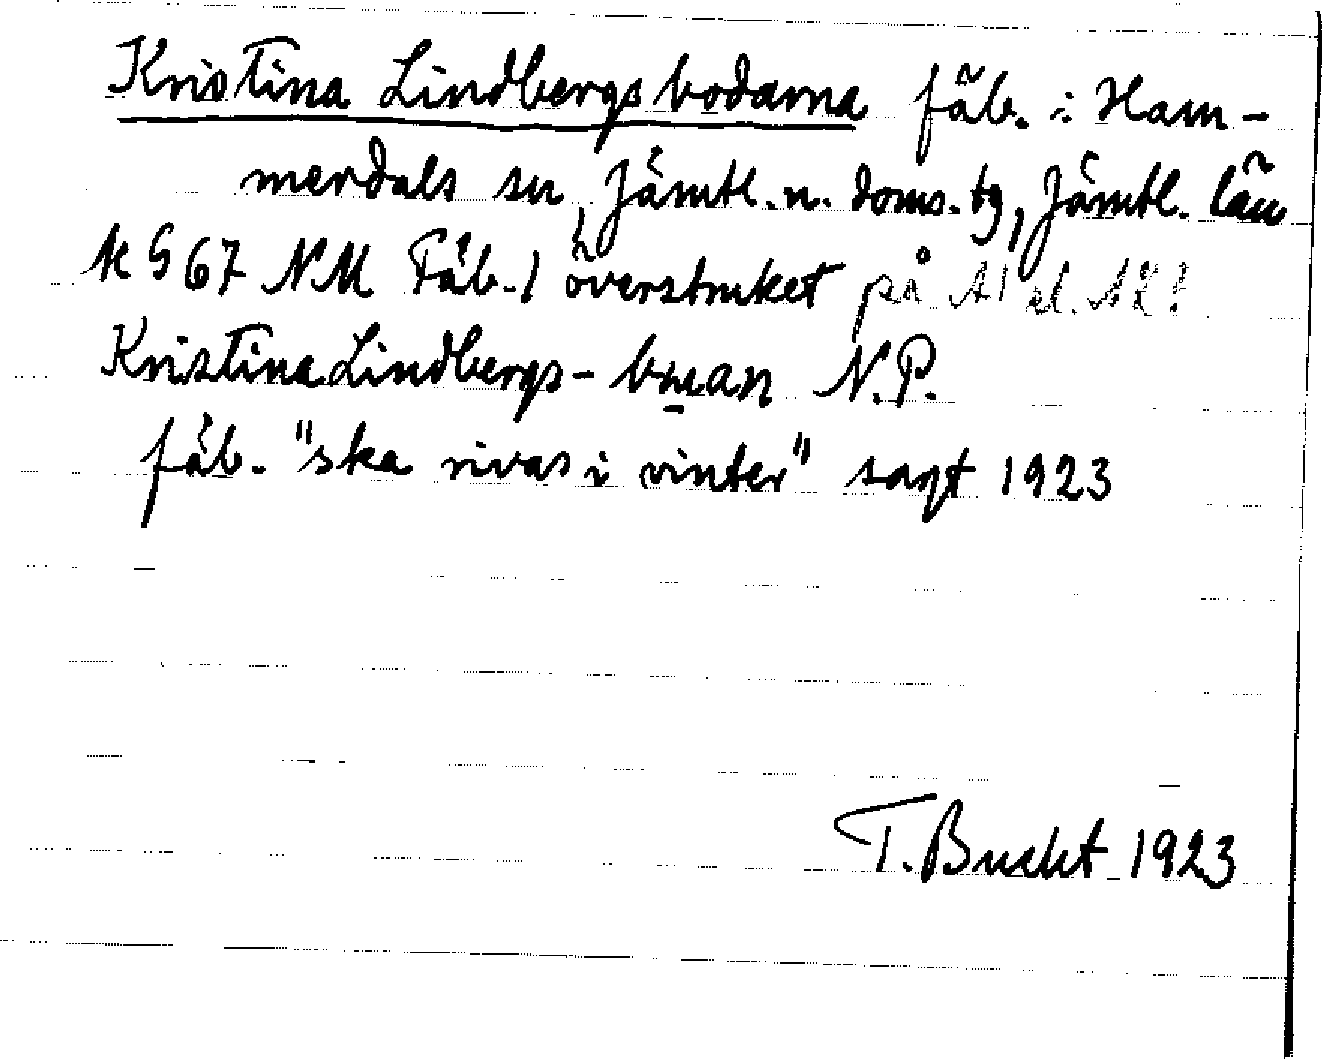 Kristina Lindbergsbodarna fäb. i Ham-
merdals sn, Jämtl. n. doms. tg, Jämtl. län
k G 67 NM Fäb. 1 överstruket på
Kristina Lindbergs- N.P.
fäb. "ska rivas i vinter" sagt 1923
T. Bucht 1923